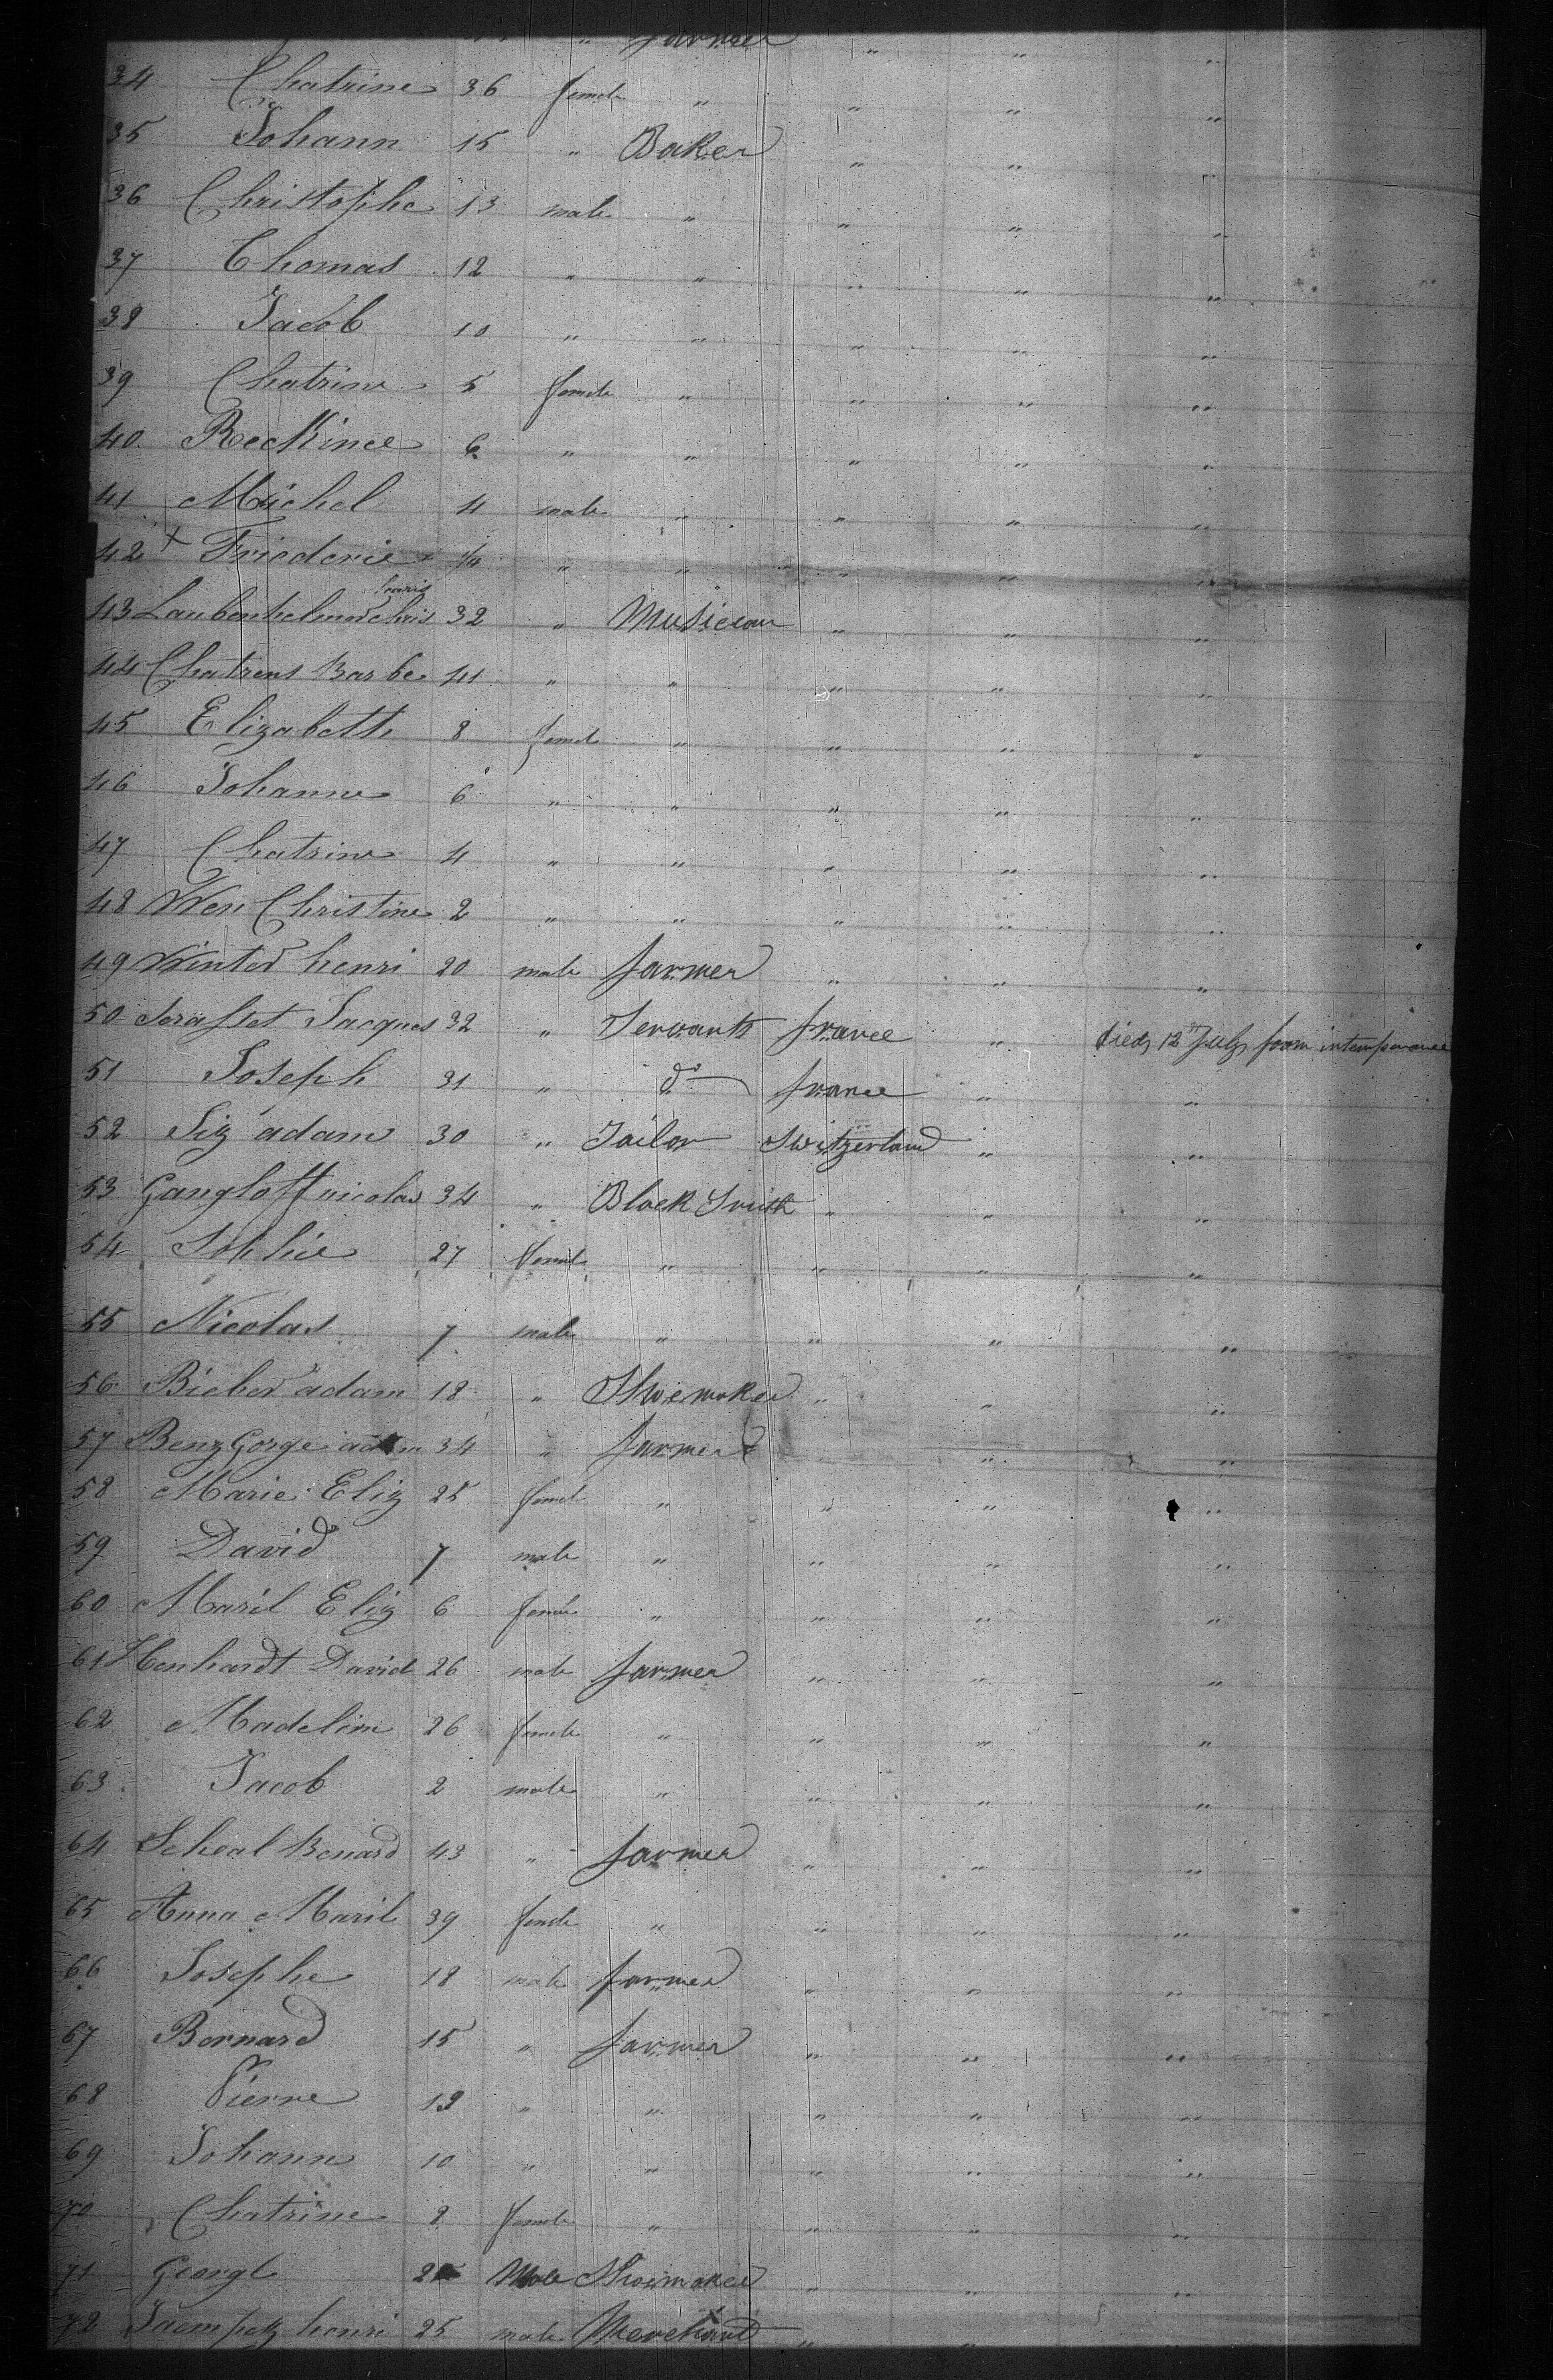 " farmer " " "
34 Chatrine 36 female " " " "
35 Johann 15 " Baker " " "
36 Christophe 13 male " " " "
37 Thomas 12 " " " " "
38 Jacob 10 " " " " "
39 Chatrine 5 female " " " "
40 Reckinee 6 " " " " "
41 Michel 4 male " " " "
42 + Friederie 1/4 " " " " "
43 32 " Musician " " "
44 Chatrens Barbe 41 " " " " "
45 Elizabetth 8 femal " " " "
46 Johanne 6 " " " " "
47 Chatrine 4 " " " " "
48 Wen Christine 2 " " " " "
49 Winter henri 20 male farmer " " "
50 Jacques 32 " Servants france " died 12th July from intemperance
51 Joseph 31 " do france " "
52 Siz adam 30 " Tailor Switzerland " "
53 Gangloff nicolas 34 " Black Smith " " "
54 Sophie 27 femal " " " "
55 Nicolas 7 male " " " "
56 Bieber adam 18 " Shoemaker " " "
57 Benz Gorge adam 34 " farmer " "
58 Marie Eliz 25 femal " " " "
59 David 7 male " " " "
60 Maril Eliz 6 female " " " "
61 Henhardt David 26 male farmer " " "
62 Madelin 26 female " " " "
63 Jacob 2 male " " " "
64 Scheal Benard 43 " farmer " " "
65 Anna Maril 39 female " " " "
66 Josephe 18 male farmer " " "
67 Bernard 15 " farmer " " "
68 Pierre 13 " " " " "
69 Johann 10 " " " " "
70 Chatrine 8 female " " " "
71 Georgl Male Shoemaker " " "
72 henri 25 male Merchant " "